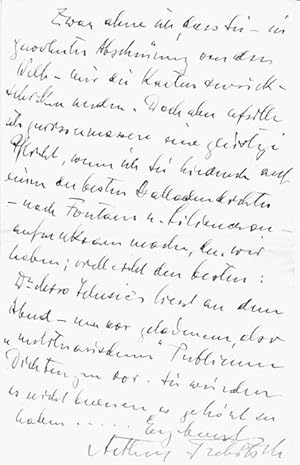 Zwar ahne ich, dass Sie – in
gewohnter Abschnürung von der
Welt – mir die Karten zurück-
schicken werden. Doch aber erfülle
ich gewissermassen eine geistige
Pflicht, wenn ich Sie hiedurch auf
einen der besten Balladendichter
– nach Fontane u. Liliencron –
aufmerksam mache, den wir
haben; vielleicht den besten:
Dr. liest an dem
Abend – nur vor geladenem, also
Publicum
Dichtungen vor. Sie würden
es nicht bereuen, es gehört zu
haben ..... Ergebenst
Arthur Trebitsch